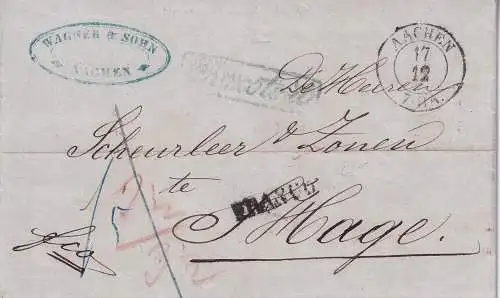 WAGNER & SOHN
AACHEN
AACHEN
17
12
De Heeren
Scheurleer & Zonen
te
FRANCO
S'Hage.
fco